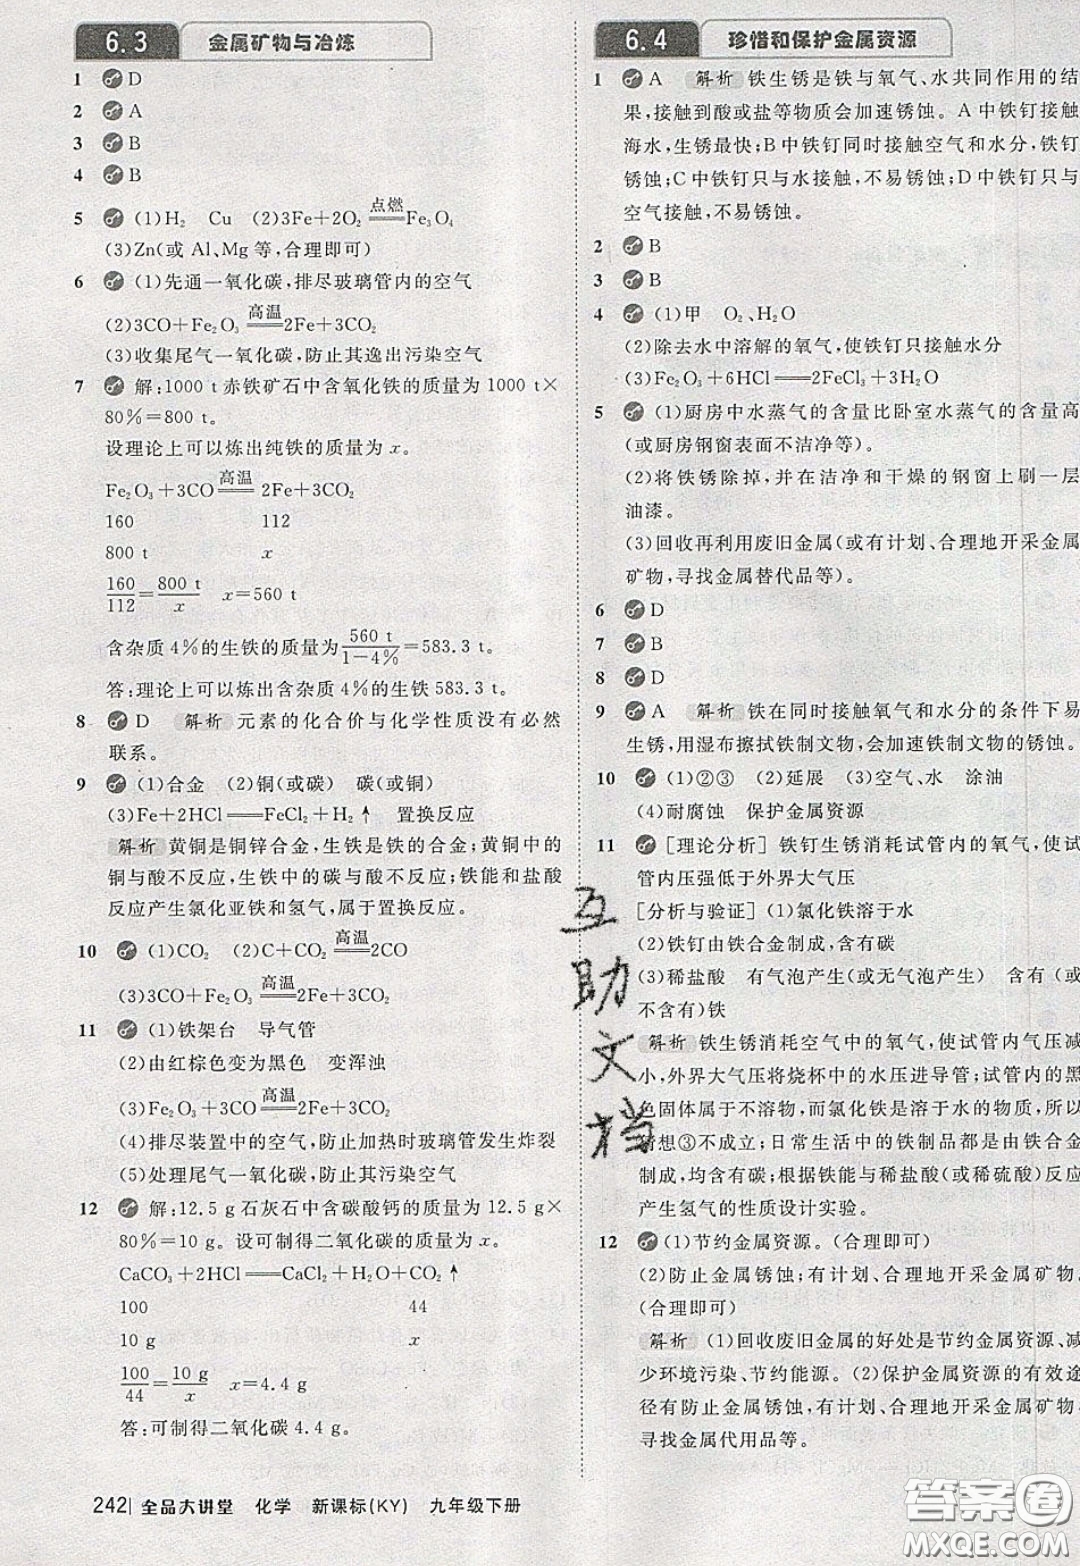 6.3 金属矿物与冶炼
1 D
2 A
3 B
4 B
5 (1)H₂ Cu (2)3Fe+2O₂ 点燃 Fe₃O₄
(3)Zn(或 Al、Mg 等,合理即可)
6 (1)先通一氧化碳,排尽玻璃管内的空气
(2)3CO+Fe₂O₃ 高温 2Fe+3CO₂
(3)收集尾气一氧化碳,防止其逸出污染空气
7 解:1000 t赤铁矿石中含氧化铁的质量为1000 t×
80%=800 t。
设理论上可以炼出纯铁的质量为 x。
Fe₂O₃+3CO 高温 2Fe+3CO₂
160 112
800 t x
160/112=800 t/x x=560 t
含杂质4%的生铁的质量为560 t/(1-4%)=583.3 t。
答:理论上可以炼出含杂质4%的生铁583.3 t。
8 D 解析 元素的化合价与化学性质没有必然
联系。
9 (1)合金 (2)铜(或碳) 碳(或铜)
(3)Fe+2HCl══FeCl₂+H₂↑ 置换反应
解析 黄铜是铜锌合金,生铁是铁的合金;黄铜中的
铜与酸不反应,生铁中的碳与酸不反应;铁能和盐酸
反应产生氯化亚铁和氢气,属于置换反应。
10 (1)CO₂ (2)C+CO₂ 高温 2CO
(3)3CO+Fe₂O₃ 高温 2Fe+3CO₂
11 (1)铁架台 导气管
(2)由红棕色变为黑色 变浑浊
(3)Fe₂O₃+3CO 高温 2Fe+3CO₂
(4)排尽装置中的空气,防止加热时玻璃管发生炸裂
(5)处理尾气一氧化碳,防止其污染空气
12 解:12.5 g石灰石中含碳酸钙的质量为12.5 g×
80%=10 g。设可制得二氧化碳的质量为 x。
CaCO₃+2HCl══CaCl₂+H₂O+CO₂↑
100 44
10 g x
100/44=10 g/x x=4.4 g
答:可制得二氧化碳4.4 g。
242 全品大讲堂 化学 新课标(KY) 九年级下册
6.4 珍惜和保护金属资源
1 A 解析 铁生锈是铁与氧气、水共同作用的结
果,接触到酸或盐等物质会加速锈蚀。A中铁钉接触
海水,生锈最快;B中铁钉同时接触空气和水分,铁钉
锈蚀;C中铁钉只与水接触,不易锈蚀;D中铁钉只与
空气接触,不易锈蚀。
2 B
3 B
4 (1)甲 O₂、H₂O
(2)除去水中溶解的氧气,使铁钉只接触水分
(3)Fe₂O₃+6HCl══2FeCl₃+3H₂O
5 (1)厨房中水蒸气的含量比卧室水蒸气的含量高
(或厨房钢窗表面不洁净等)。
(2)将铁锈除掉,并在洁净和干燥的钢窗上刷一层
油漆。
(3)回收再利用废旧金属(或有计划、合理地开采金属
矿物,寻找金属替代品等)。
6 D
7 B
8 D
9 A 解析 铁在同时接触氧气和水分的条件下易
生锈,用湿布擦拭铁制文物,会加速铁制文物的锈蚀。
10 (1)①②③ (2)延展 (3)空气、水 涂油
(4)耐腐蚀 保护金属资源
11 [理论分析] 铁钉生锈消耗试管内的氧气,使试
管内压强低于外界大气压
[分析与验证] (1)氯化铁溶于水
(2)铁钉由铁合金制成,含有碳
(3)稀盐酸 有气泡产生(或无气泡产生) 含有(或
不含有)铁
解析 铁生锈消耗空气中的氧气,使试管内气压减
小,外界大气压将烧杯中的水压进导管;试管内的黑
色固体属于不溶物,而氯化铁是溶于水的物质,所以
猜想③不成立;日常生活中的铁制品都是由铁合金
制成,均含有碳;根据铁能与稀盐酸(或稀硫酸)反应
产生氢气的性质设计实验。
12 (1)节约金属资源。(合理即可)
(2)防止金属锈蚀;有计划、合理地开采金属矿物。
(合理即可)
解析 (1)回收废旧金属的好处是节约金属资源、减
少环境污染、节约能源。(2)保护金属资源的有效途
径有防止金属锈蚀,有计划、合理地开采金属矿物和
寻找金属代用品等。
互助文档
答案圈
MXQE.COM